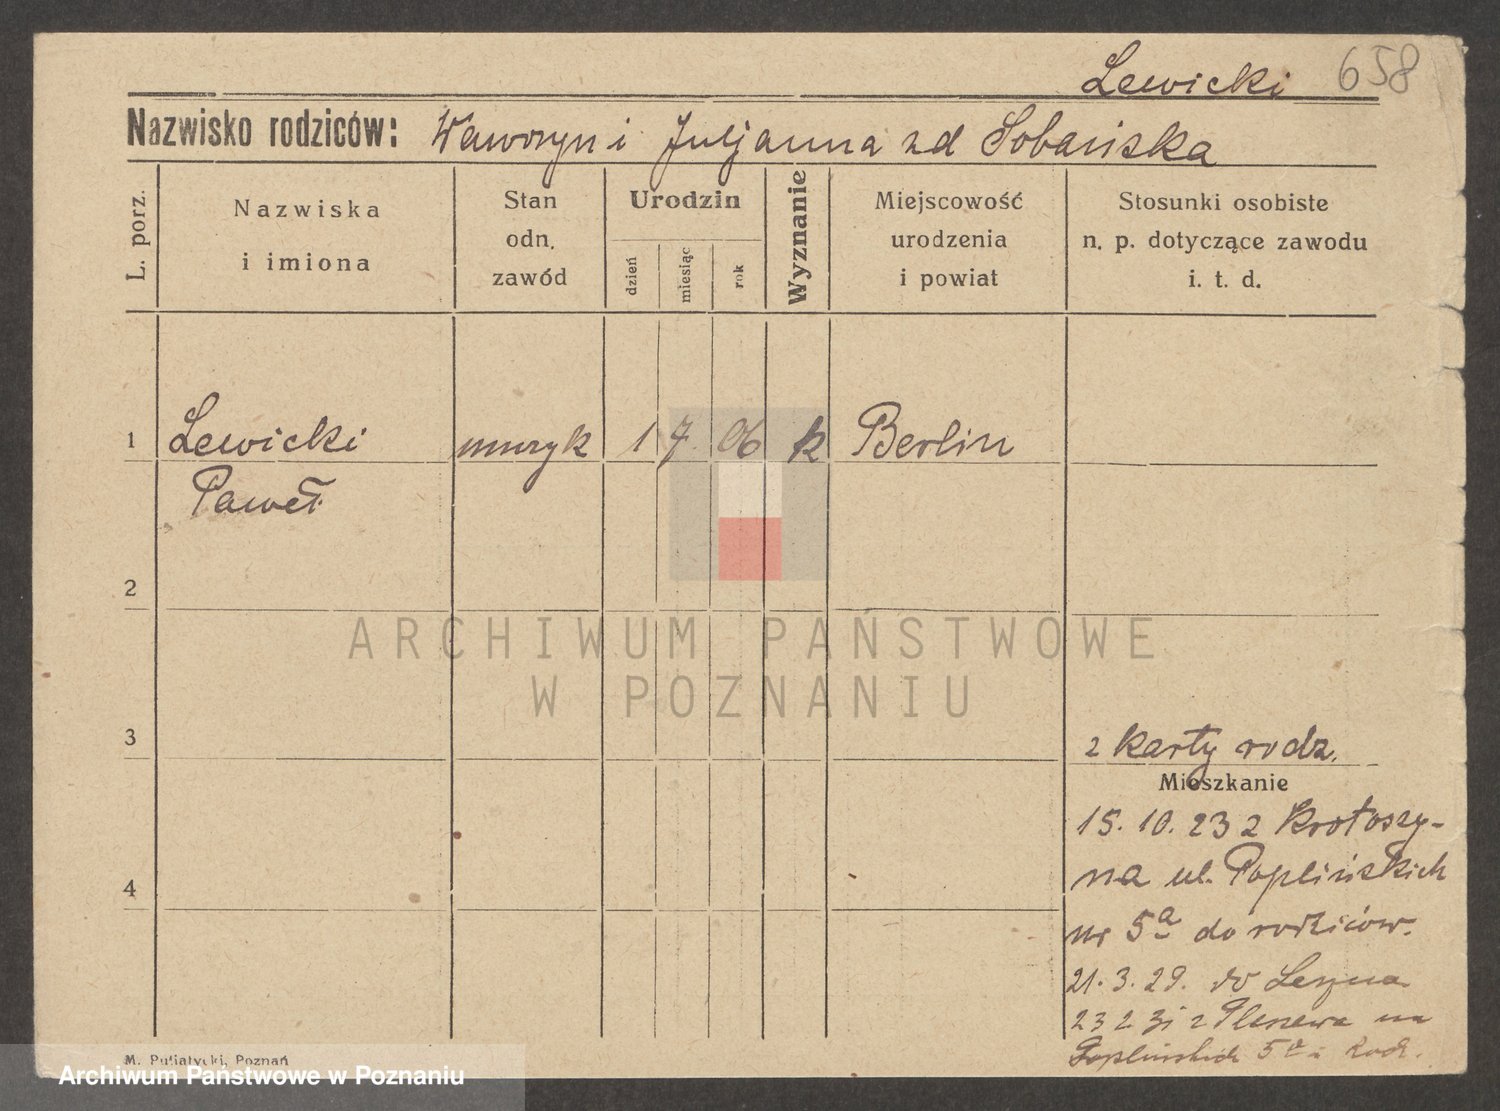 Lewicki 658
Nazwisko rodziców: Wawrzyn i Juljanna zd Sobańska
L. porz.
Nazwiska
i imiona
Stan
odn.
zawód
Urodzin
dzień
miesiąc
rok
Wyznanie
Miejscowość
urodzenia
i powiat
Stosunki osobiste
n. p. dotyczące zawodu
i. t. d.
1 Lewicki muzyk 1 7. 06 k Berlin
Paweł
2
ARCHIWUM PAŃSTWOWE
W POZNANIU
3
z karty rodz.
Mieszkanie
15. 10. 23 z Krotoszy-
na ul. Poplińskich
4
nr 5a do rodziców.
21. 3. 29. do Leszna
23 2 31 z Pleszewa na
Poplińskich 5a rodz.
M. Putiatycki, Poznań
Archiwum Państwowe w Poznaniu